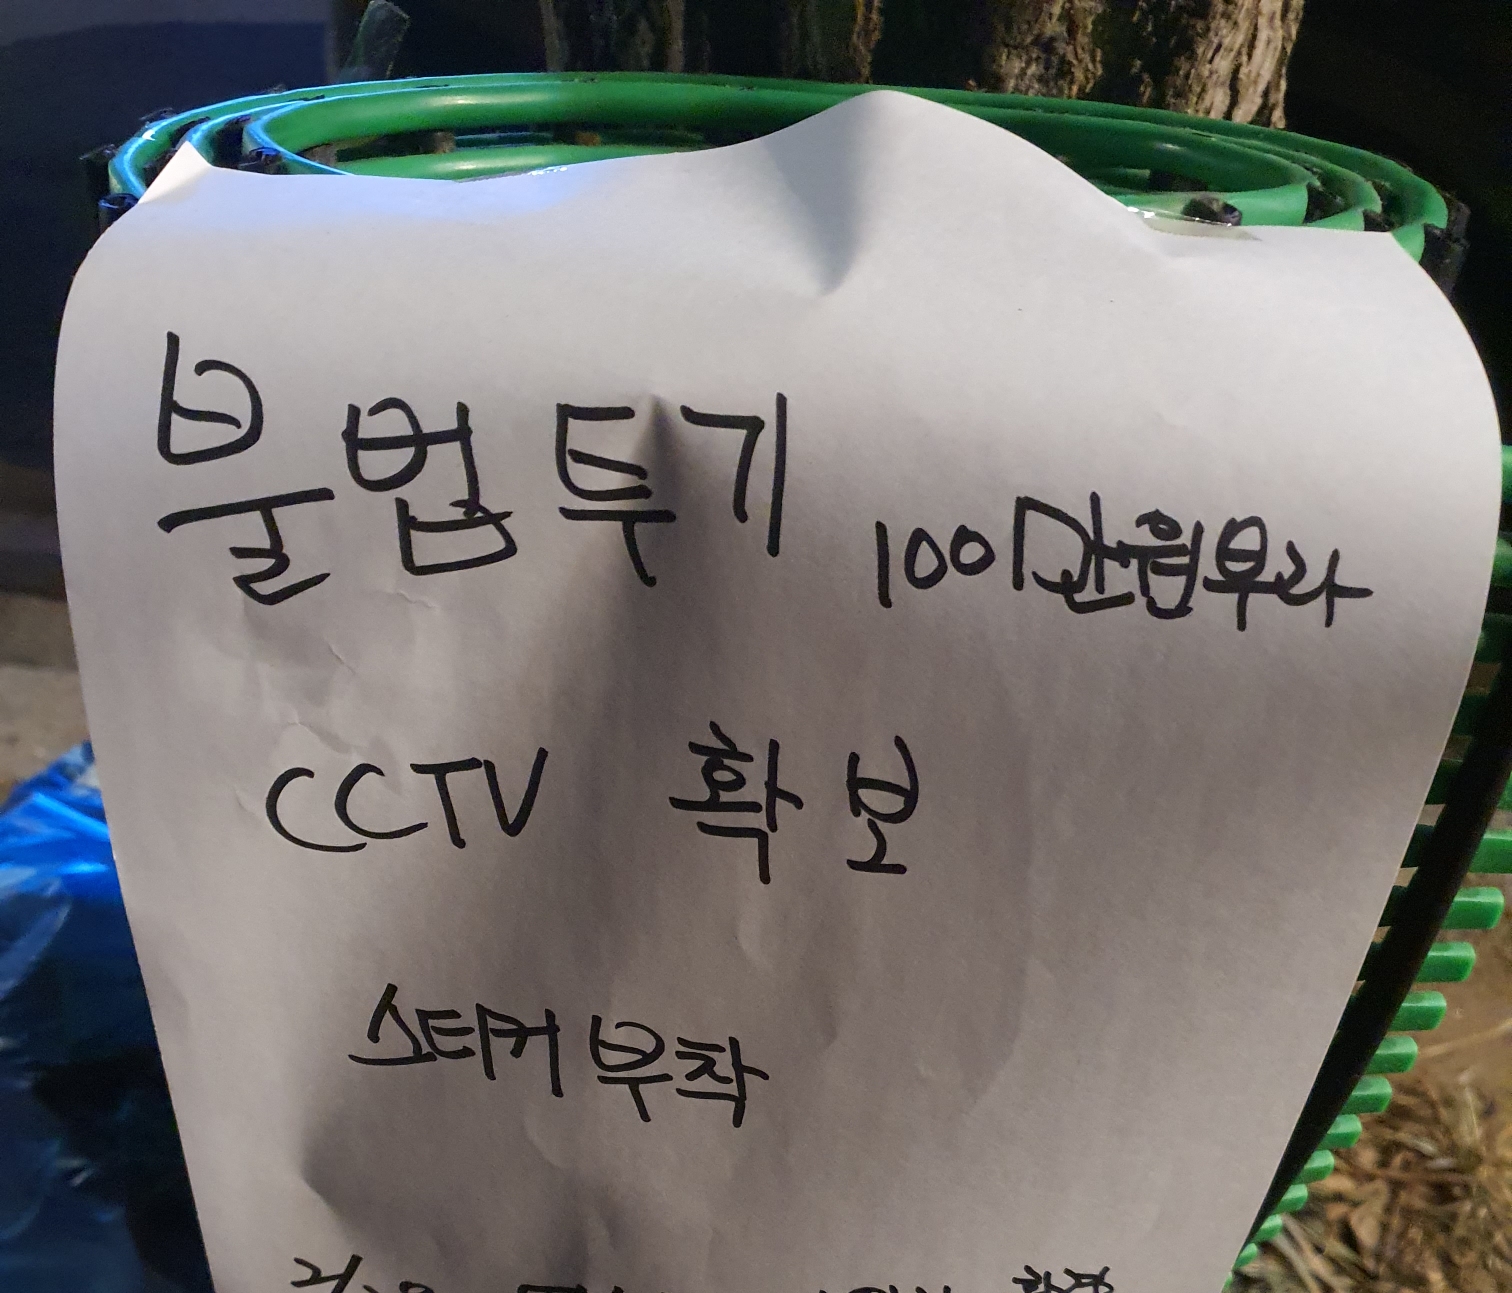 불법투기 100만원부과
CCTV 확보
스티커부착